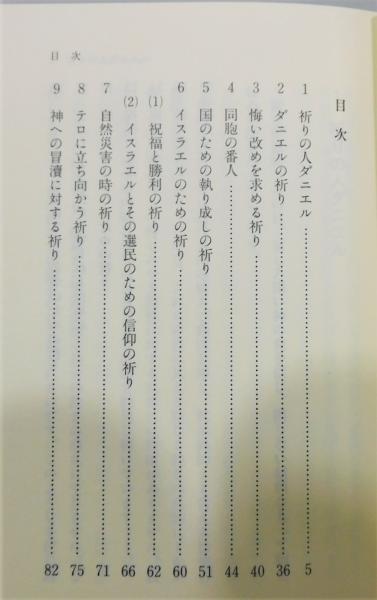 目次
目次
1 祈りの人ダニエル 5
2 ダニエルの祈り 36
3 悔い改めを求める祈り 40
4 同胞の番人 44
5 国のための執り成しの祈り 51
6 イスラエルのための祈り 60
(1) 祝福と勝利の祈り 62
(2) イスラエルとその選民のための信仰の祈り 66
7 自然災害の時の祈り 71
8 テロに立ち向かう祈り 75
9 神への冒瀆に対する祈り 82